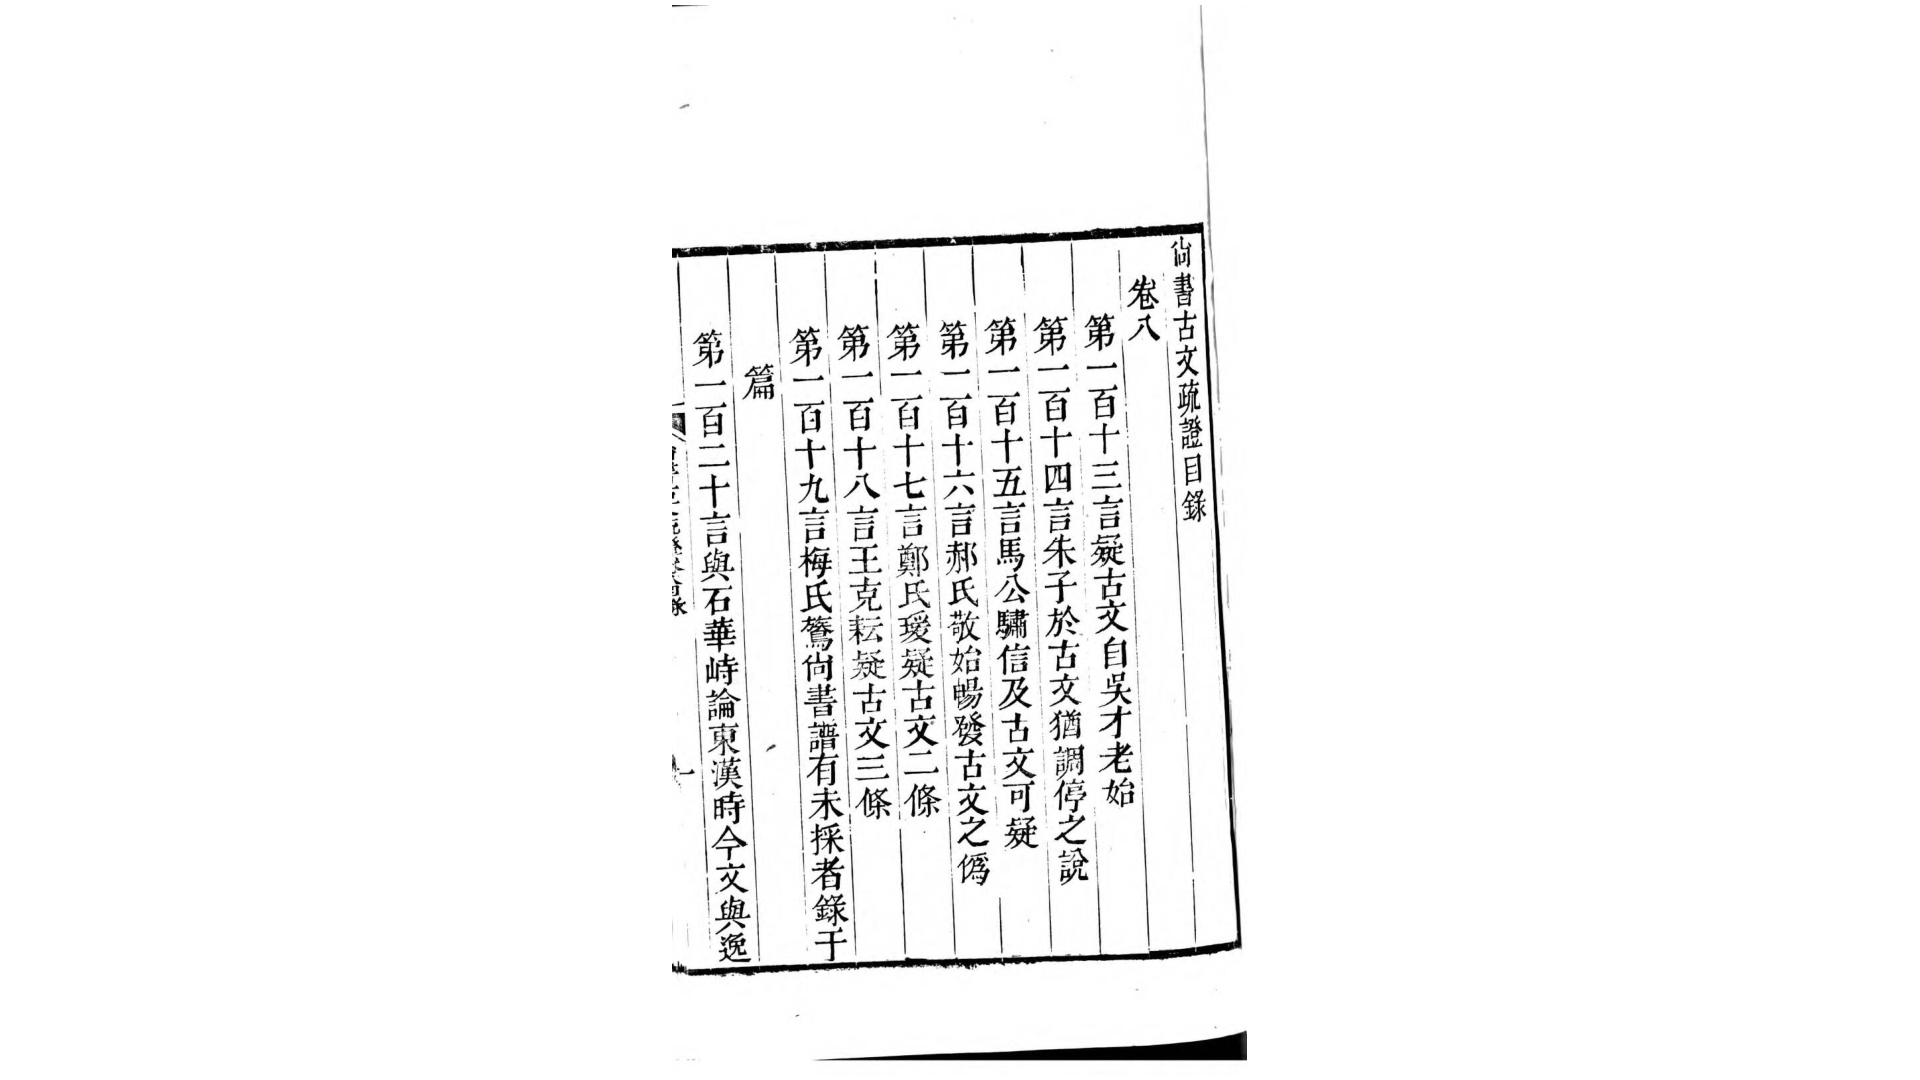 尙書古文疏證目錄
卷八
第一百十三言疑古文自吳才老始
第一百十四言朱子於古文猶調停之說
第一百十五言馬公驌信及古文可疑
第一百十六言郝氏敬始暢發古文之僞
第一百十七言鄭氏瑗疑古文二條
第一百十八言王克耘疑古文三條
第一百十九言梅氏鷟尙書譜有未採者錄于
篇
第一百二十言與石華峙論東漢時今文與逸